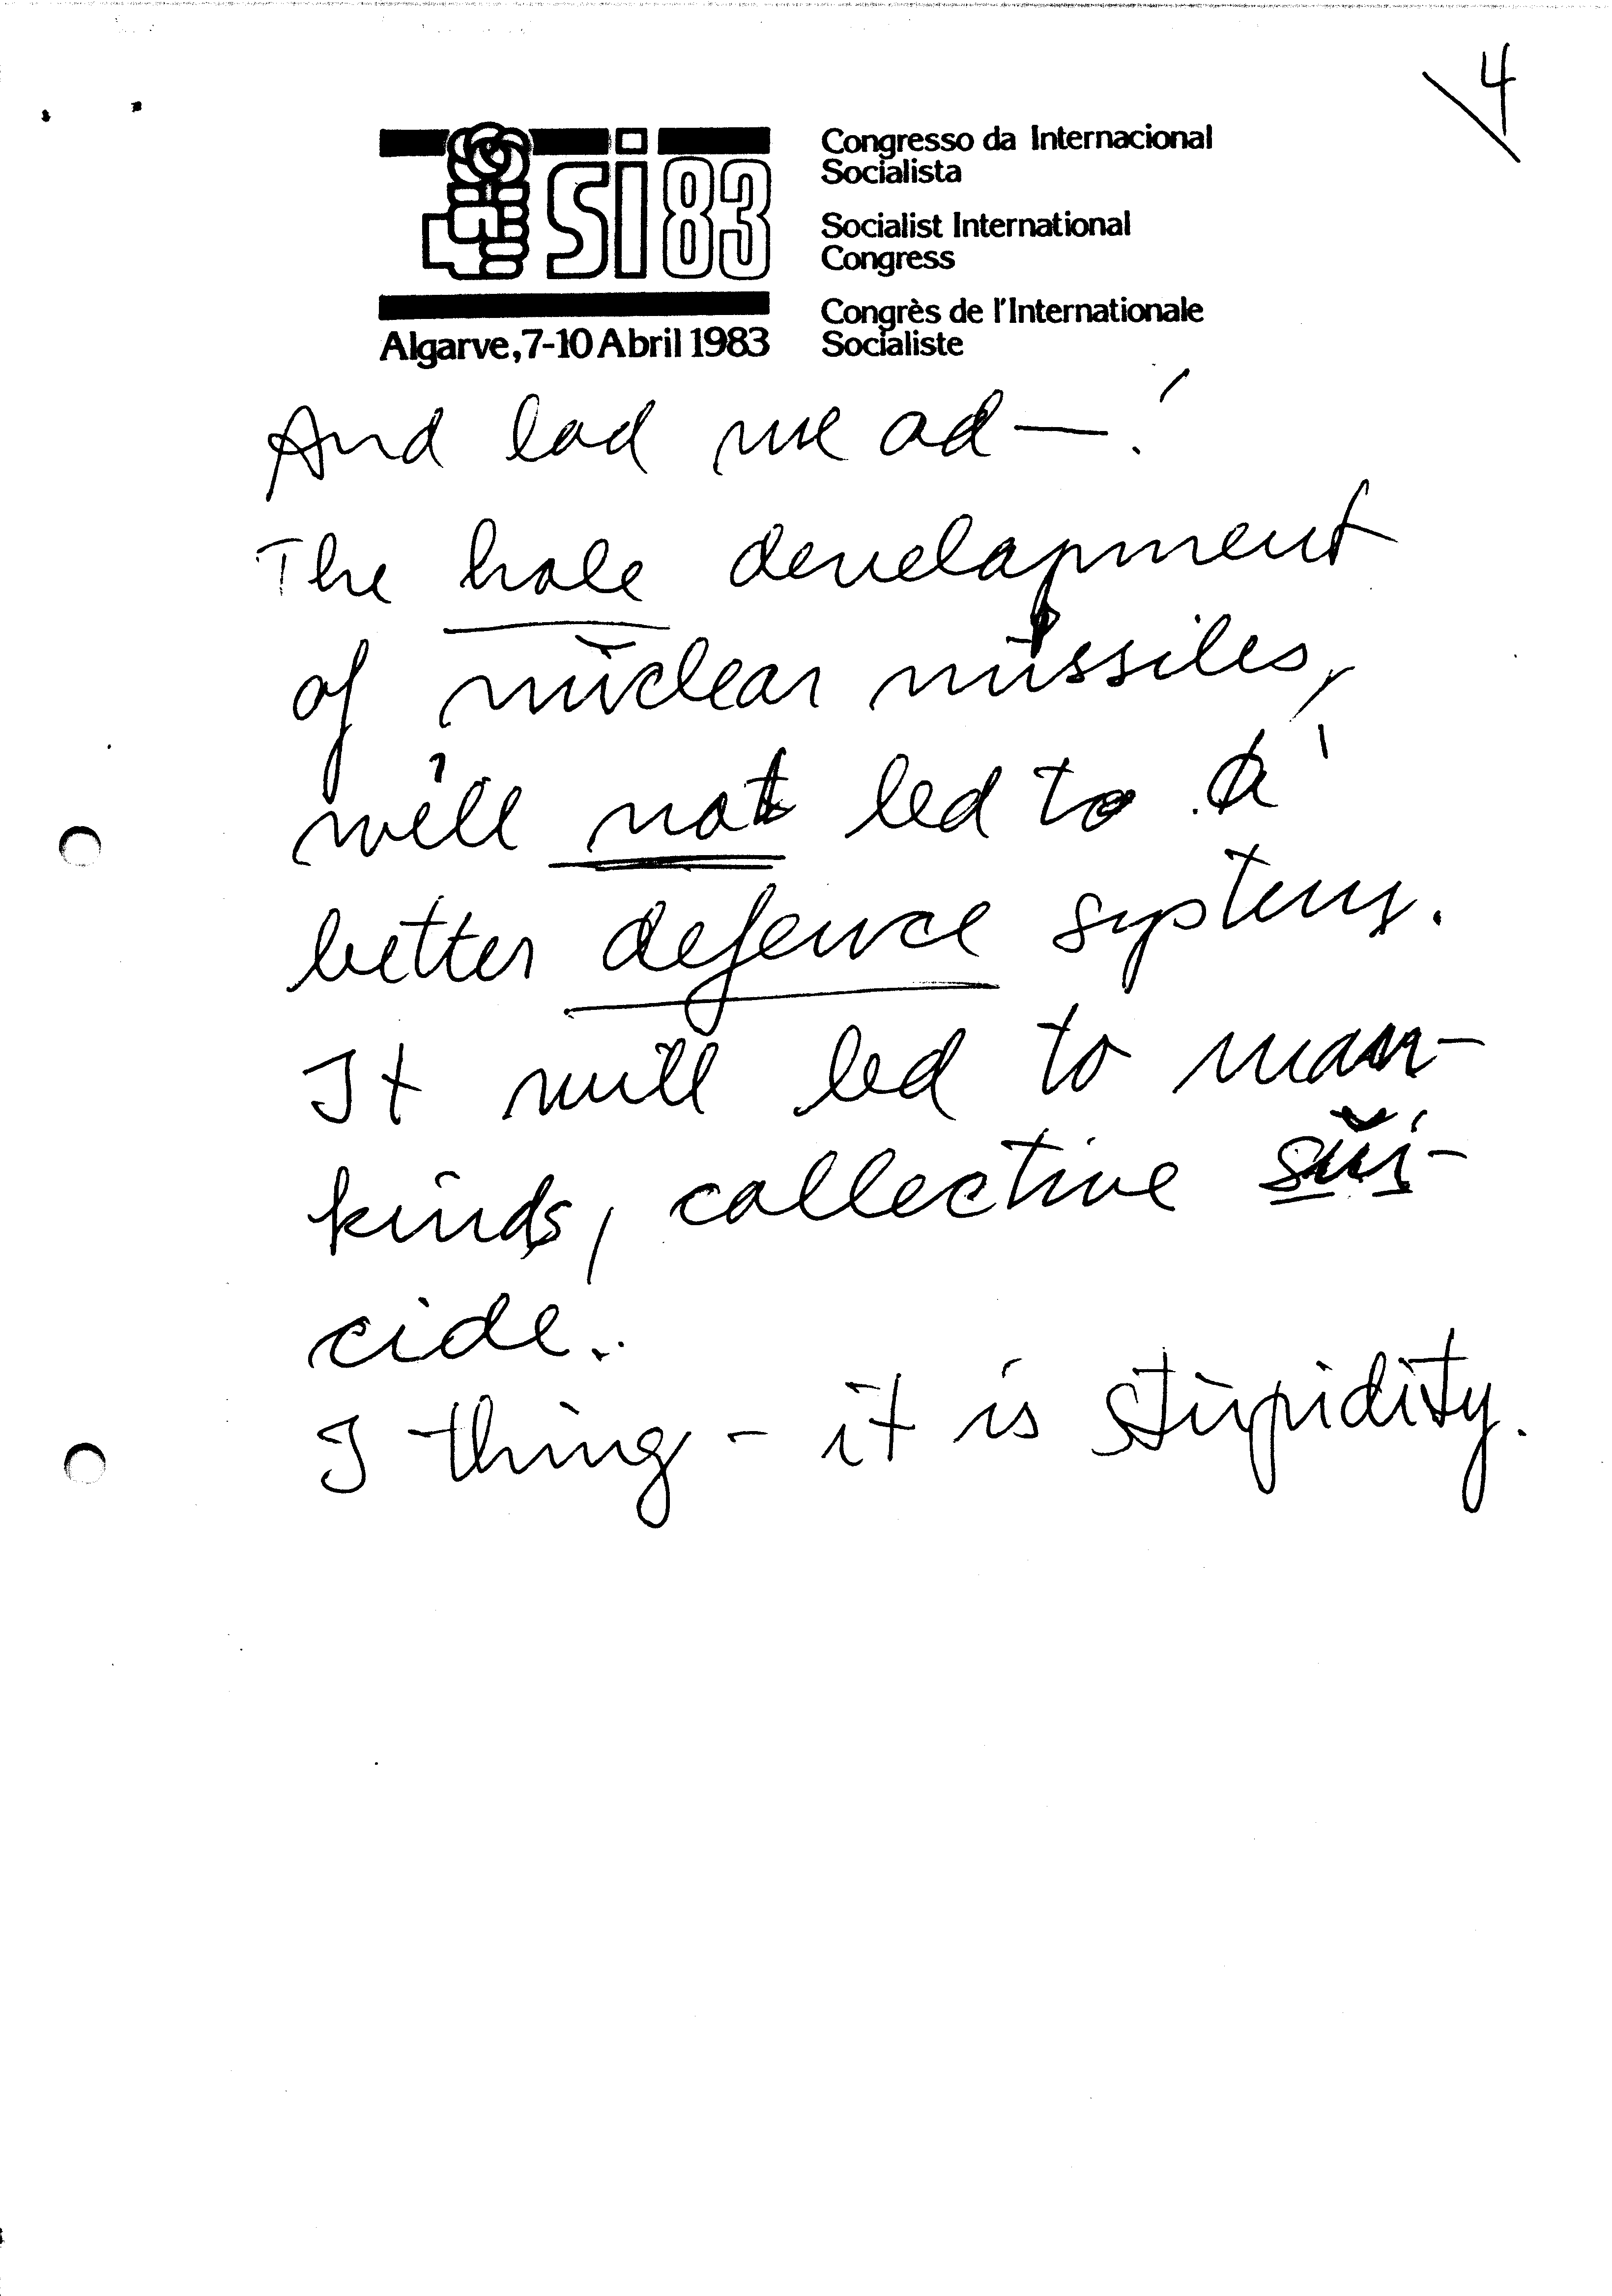 4
si 83
Congresso da Internacional
Socialista
Socialist International
Congress
Congrès de l'Internationale
Socialiste
Algarve, 7-10 Abril 1983
And lad me ad — !
The hole development
of nuclear missiles,
will not led to a
better defence system.
It will led to man-
kinds, collective sui-
cide..
I thing - it is stupidity.